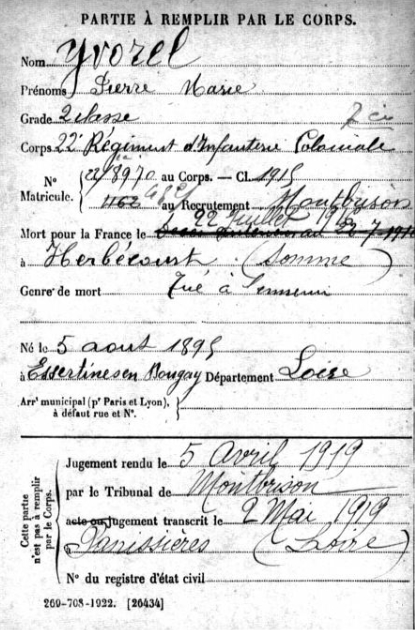 PARTIE À REMPLIR PAR LE CORPS.
Nom Yvorel
Prénoms Pierre Marie
Grade 2e classe
Corps 22e Régiment d'Infanterie Coloniale
N° Matricule. { 22/8970 au Corps. — Cl. 1915
1162 au Recrutement Montbrison
22 Juillet 1916
Mort pour la France le
à Herbécourt (Somme)
Genre de mort Tué à l'ennemi
Né le 5 aout 1895
à Essertines en Donzy Département Loire
Arrt municipal (pr Paris et Lyon), à défaut rue et N°. }
Cette partie n'est pas à remplir par le Corps.
Jugement rendu le 5 Avril 1919
par le Tribunal de Montbrison
acte ou jugement transcrit le 2 Mai 1919
à Panissières (Loire)
N° du registre d'état civil
269-708-1922. [26434]